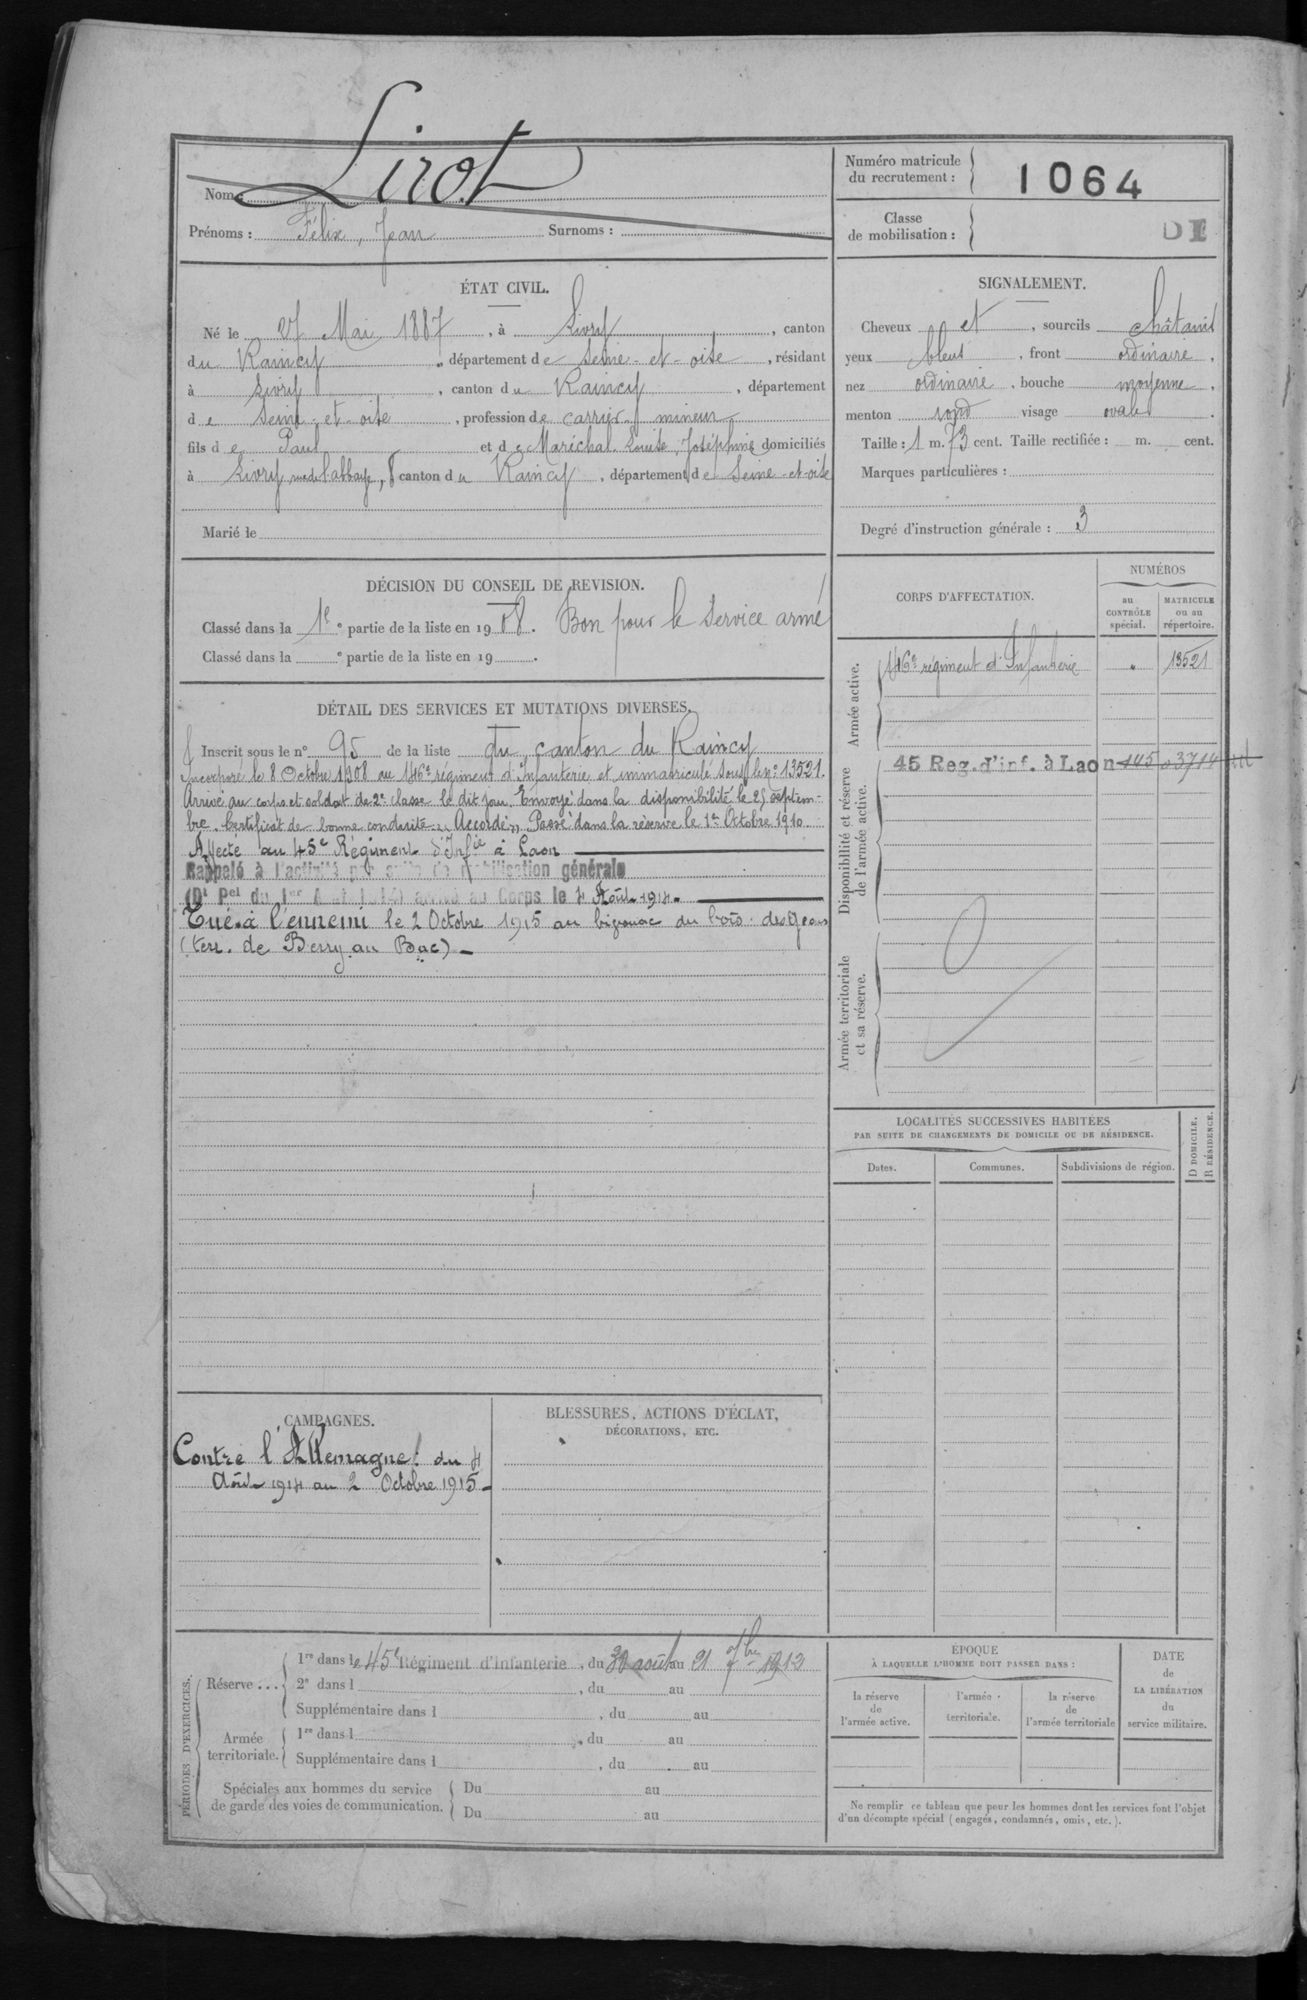 Lirot
Nom :
Prénoms : Félix, Jean Surnoms :
Numéro matricule
du recrutement : 1064
Classe
de mobilisation :
ÉTAT CIVIL.
Né le 27 Mai 1887, à Livry, canton
du Raincy, département de Seine-et-oise, résidant
à Livry, canton du Raincy, département
de Seine-et-oise, profession de carrier mineur
fils de Paul et de Maréchal Louise, Joséphine domiciliés
à Livry, 8 canton du Raincy, département de Seine-et-oise
Marié le
SIGNALEMENT.
Cheveux et, sourcils châtains
yeux bleus, front ordinaire,
nez ordinaire, bouche moyenne,
menton rond visage ovale.
Taille : 1 m. 73 cent. Taille rectifiée : m. cent.
Marques particulières :
Degré d'instruction générale : 3
DÉCISION DU CONSEIL DE REVISION.
Classé dans la 1e partie de la liste en 1908. Bon pour le service armé
Classé dans la e partie de la liste en 19 .
DÉTAIL DES SERVICES ET MUTATIONS DIVERSES.
Inscrit sous le n° 95 de la liste du canton du Raincy
Incorporé le 8 Octobre 1908 au 146e régiment d'Infanterie et immatriculé sous le n° 13521.
Arrivé au corps et soldat de 2e classe le dit jour. Envoyé dans la disponibilité le 25 septem-
bre. Certificat de bonne conduite "Accordé". Passé dans la réserve le 1er Octobre 1910.
Affecté au 45e Régiment d'Infie à Laon
Rappelé à l'activité par suite de mobilisation générale
(Dt Pel du 1er Août 1914) arrivé au Corps le 4 Août 1914.
Tué à l'ennemi le 2 Octobre 1915 au bivouac du bois des
(terr. de Berry au Bac)
CORPS D'AFFECTATION.
NUMÉROS
au
CONTRÔLE
spécial.
MATRICULE
ou au
répertoire.
Armée active.
146e régiment d'Infanterie " 13521
Disponibilité et réserve
de l'armée active.
45 Reg. d'inf. à Laon
Armée territoriale
et sa réserve.
LOCALITÉS SUCCESSIVES HABITÉES
PAR SUITE DE CHANGEMENTS DE DOMICILE OU DE RÉSIDENCE.
Dates. Communes. Subdivisions de région.
D DOMICILE.
R RÉSIDENCE.
CAMPAGNES.
Contre l'Allemagne du 4
Août 1914 au 2 Octobre 1915
BLESSURES, ACTIONS D'ÉCLAT,
DÉCORATIONS, ETC.
PÉRIODES D'EXERCICES.
Réserve...
1re dans le 45e Régiment d'Infanterie, du 30 août au 21 7bre 1913
2e dans l , du au
Supplémentaire dans l , du au
Armée
territoriale.
1re dans l , du au
Supplémentaire dans l , du au
Spéciales aux hommes du service
de garde des voies de communication.
Du au
Du au
ÉPOQUE
À LAQUELLE L'HOMME DOIT PASSER DANS :
la réserve
de
l'armée active.
l'armée
territoriale.
la réserve
de
l'armée territoriale
DATE
de
LA LIBÉRATION
du
service militaire.
Ne remplir ce tableau que pour les hommes dont les services font l'objet
d'un décompte spécial (engagés, condamnés, omis, etc.).